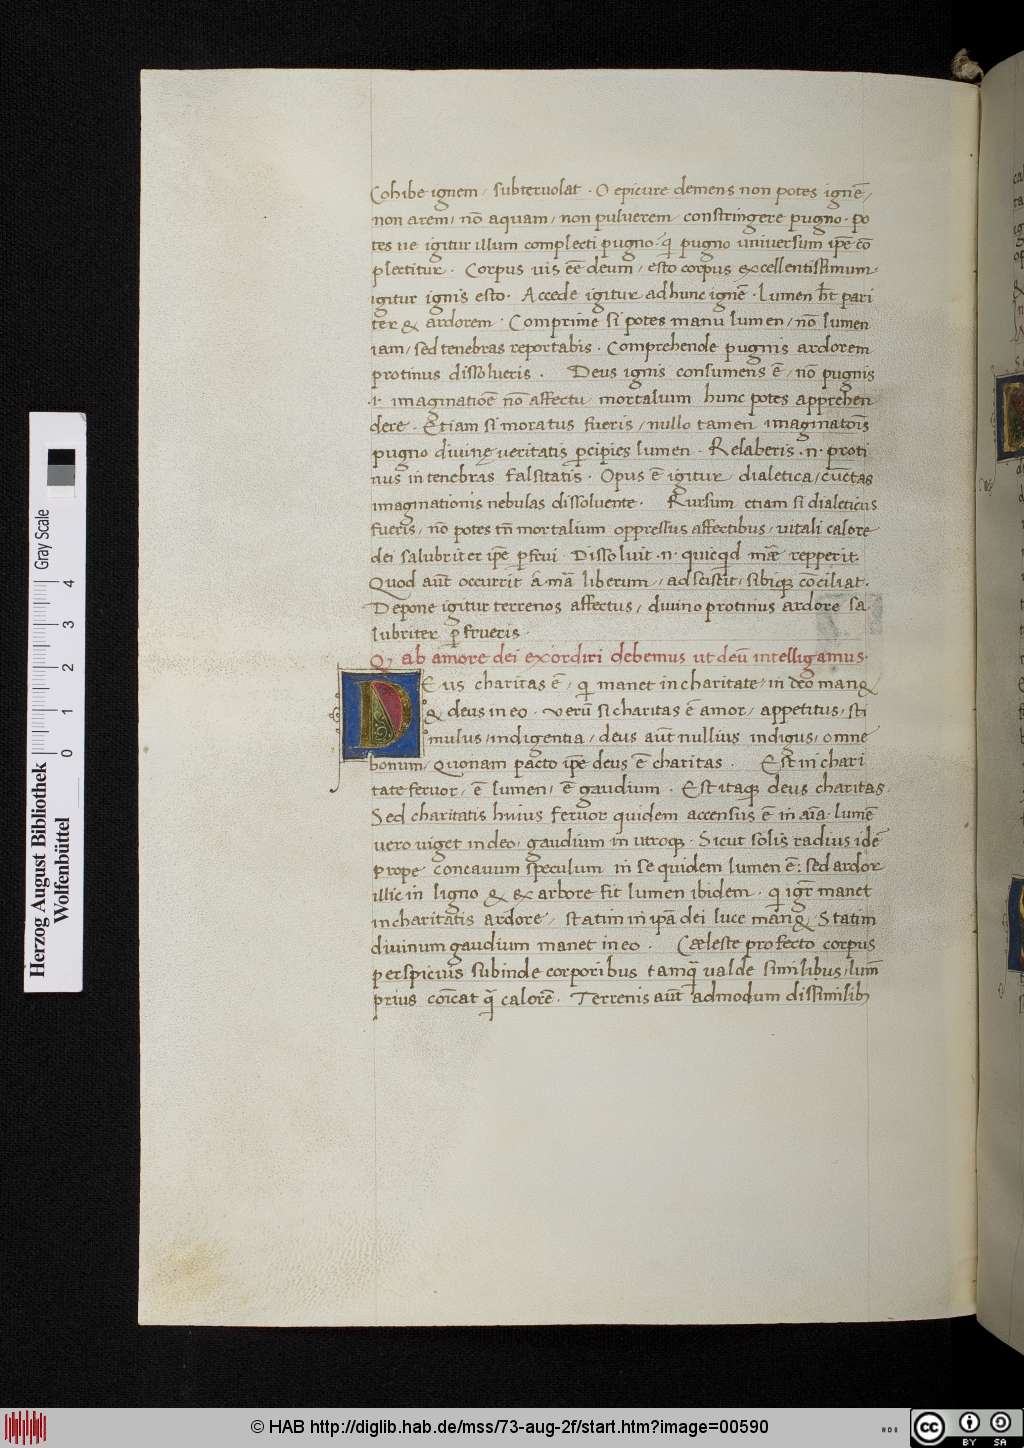 Cohibe ignem / subtervolat · O epicure demens non potes ignē /
non aerem / nō aquam / non pulverem constringere pugno · po
tes ne igitur illum complecti pugno / qi pugno universum ipē cō
plectitur · Corpus vis eē deum / esto corpus excellentissimum ·
igitur ignis esto · Accede igitur ad hunc ignē · Lumen ht pari
ter & ardorem · Comprime si potes manu lumen / nō lumen
iam / sed tenebras reportabis · Comprehende pugnis ardorem
protinus dissolveris · Deus ignis consumens ē / nō pugnis
·i· imaginatiōe nō affectu mortalium hunc potes apprehen
dere · Etiam si moratus fueris / nullo tamen imaginatōis
pugno divinę veritatis pcipies lumen · Relaberis ·n· proti
nus in tenebras falsitatis · Opus ē igitur dialetica / cūctas
imaginationis nebulas dissoluente · Rursum etiam si dialeticus
fueris / nō potes tn̄ mortalium oppressus affectibus / vitali calore
dei salubriter ipē pfrui · Dissolvit ·n· quicqd māe repperit ·
Quod aūt occurrit á mā liberum / adsciscit / sibiq; cōciliat ·
Depone igitur terrenos affectus / divino protinus ardore sa
lubriter p frueris ·
Q; ab amore dei exordiri debemus ut deū intelligamus ·
DEus charitas ē / qi manet in charitate / in deo manq
& deus in eo · verū si charitas ē amor / appetitus / sti
mulus / indigentia / deus aūt nullius indigus / omne
bonum / quonam pacto ipē deus ē charitas · Est in chari
tate fervor / ē lumen / ē gaudium · Est itaq; deus charitas ·
Sed charitatis huius fervor quidem accensus ē in aīa · lumē
vero viget in deo / gaudium in utroq; · Sicut solis radius idē
prope concavum speculum in se quidem lumen ē : sed ardor
illic in ligno & ex arbore fit lumen ibidem · qi igr̄ manet
in charitatis ardore / statim in ipā dei luce manq · Statim
divinum gaudium manet in eo · Cæleste profecto corpus
perspicuis subinde corporibus tamq̄ valde similibus / lum̄
prius cōicat q̄ calorē · Terrenis aūt admodum dissimilib;
Herzog August Bibliothek
Wolfenbüttel
0 1 2 3 4
Gray Scale
© HAB http://diglib.hab.de/mss/73-aug-2f/start.htm?image=00590
cc BY SA